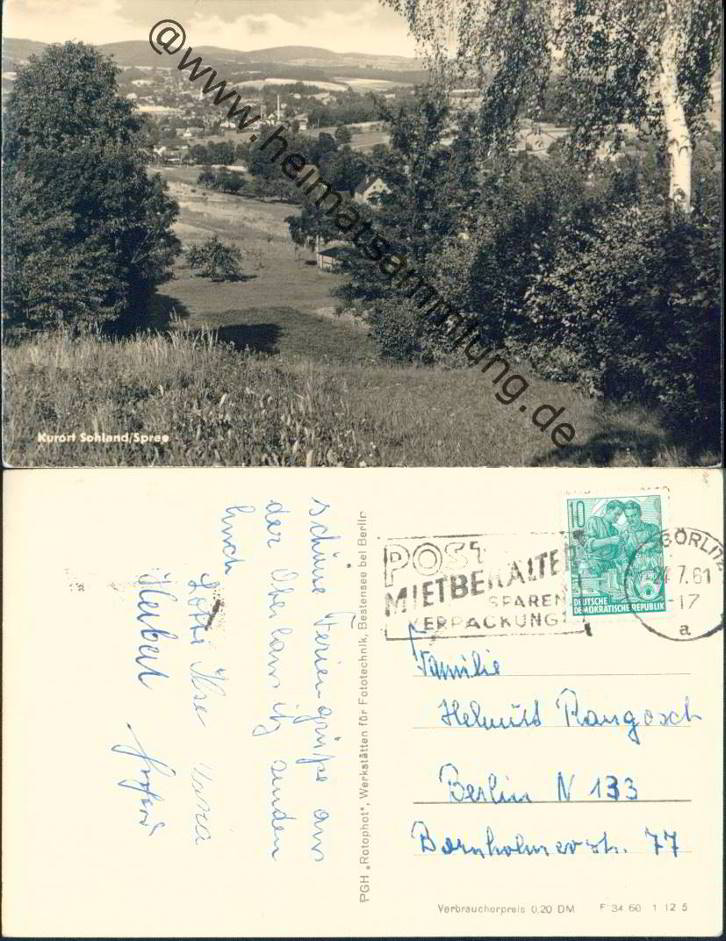 @www.heimatsammlung.de
Kurort Sohland/Spree
schöne Feriengrüße aus
der Oberlausitz senden
Euch
Lotti Ilse
Herbert
PGH „Rotophot", Werkstätten für Fototechnik, Bestensee bei Berlin
POST
MIETBEHÄLTER
SPAREN
VERPACKUNG!
10
DEUTSCHE
DEMOKRATISCHE REPUBLIK
GÖRLITZ
24.7.61
-17
a
Familie
Helmut Rangosch
Berlin N 133
Bornholmerstr. 77
Verbraucherpreis 0,20 DM F 34 60 1 12 5